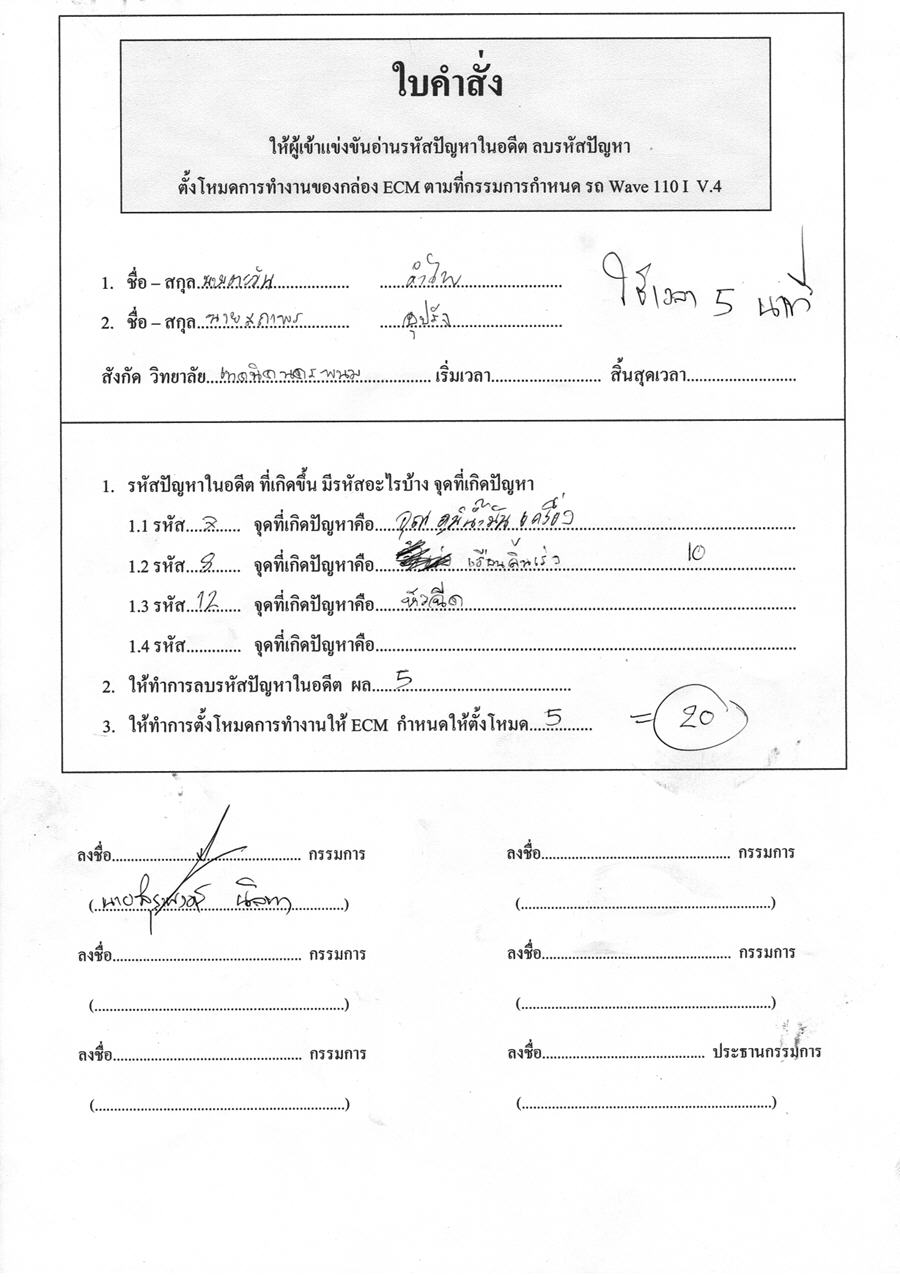 ใบคำสั่ง
ให้ผู้เข้าแข่งขันอ่านรหัสปัญหาในอดีต ลบรหัสปัญหา
ตั้งโหมดการทำงานของกล่อง ECM ตามที่กรรมการกำหนด รถ Wave 110 I V.4
1. ชื่อ – สกุล....................
ใช้เวลา 5 นาที
2. ชื่อ – สกุล นาย....................
สังกัด วิทยาลัย เทคนิคนครพนม เริ่มเวลา.................... สิ้นสุดเวลา....................
1. รหัสปัญหาในอดีต ที่เกิดขึ้น มีรหัสอะไรบ้าง จุดที่เกิดปัญหา
1.1 รหัส........ จุดที่เกิดปัญหาคือ น้ำมันเครื่อง
1.2 รหัส 8 จุดที่เกิดปัญหาคือ เรือนลิ้นเร่ง 10
1.3 รหัส 12 จุดที่เกิดปัญหาคือ หัวฉีด
1.4 รหัส............. จุดที่เกิดปัญหาคือ....................
2. ให้ทำการลบรหัสปัญหาในอดีต ผล 5
3. ให้ทำการตั้งโหมดการทำงานให้ ECM กำหนดให้ตั้งโหมด 5 = 20
ลงชื่อ.................... กรรมการ ลงชื่อ.................... กรรมการ
(นาย....................) (....................)
ลงชื่อ.................... กรรมการ ลงชื่อ.................... กรรมการ
(....................) (....................)
ลงชื่อ.................... กรรมการ ลงชื่อ.................... ประธานกรรมการ
(....................) (....................)